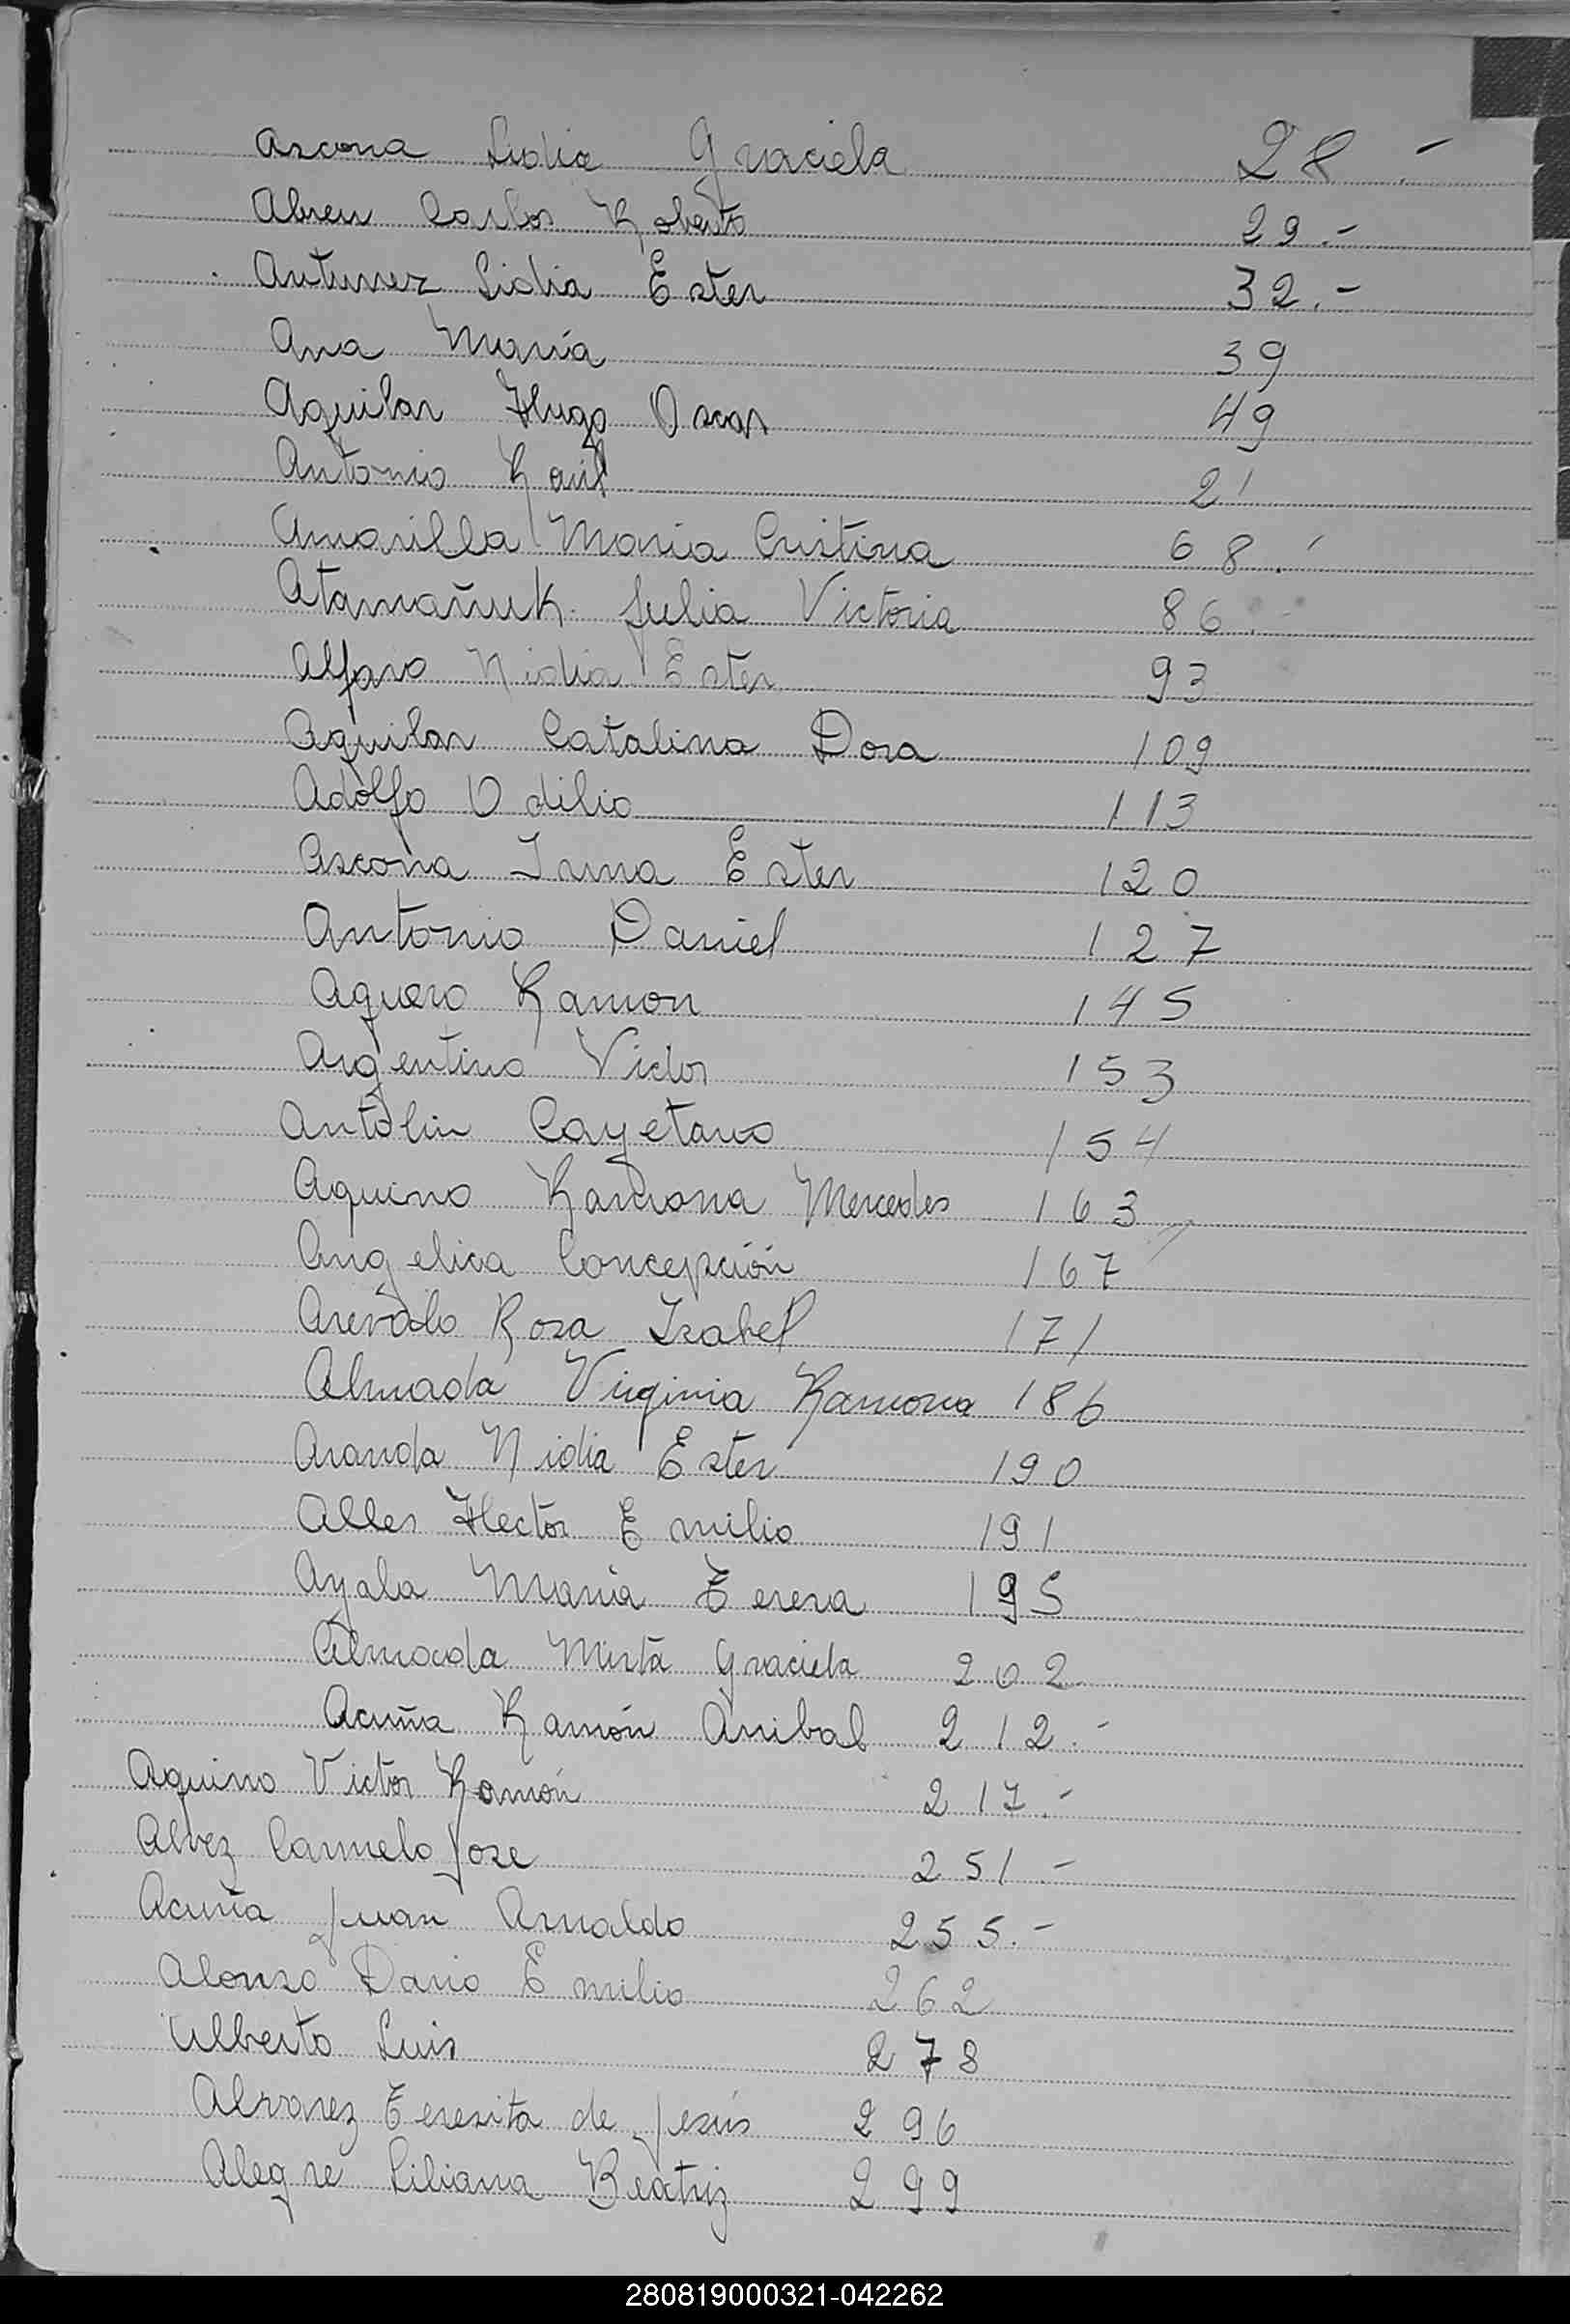 Ascona Lidia Graciela 28.-
Abreu Carlos Roberto 29.-
Antunez Lidia Ester 32.-
Ana María 39
Aguilar Hugo Oscar 49
Antonio Raúl 21
Amarilla Maria Cristina 68.-
Atamañuk Julia Victoria 86.-
Alfaro Nidia Ester 93
Aguilar Catalina Dora 109
Adolfo Odilio 113
Ascona Irma Ester 120
Antonio Daniel 127
Aguero Ramon 145
Argentino Victor 153
Antolin Cayetano 154
Aquino Ramona Mercedes 163
Angelica Concepción 167
Arevalo Rosa Isabel 171
Almada Virginia Ramona 186
Aranda Nidia Ester 190
Alles Hector Emilio 191
Ayala María Teresa 195
Almada Mirta Graciela 202
Acuña Ramón Anibal 212.-
Aquino Victor Ramón 217.-
Alvez Carmelo Jose 251.-
Acuña Juan Arnaldo 255.-
Alonso Dario Emilio 262
Alberto Luis 278
Alvarez Teresita de Jesús 296
Alegre Liliana Beatriz 299
280819000321-042262